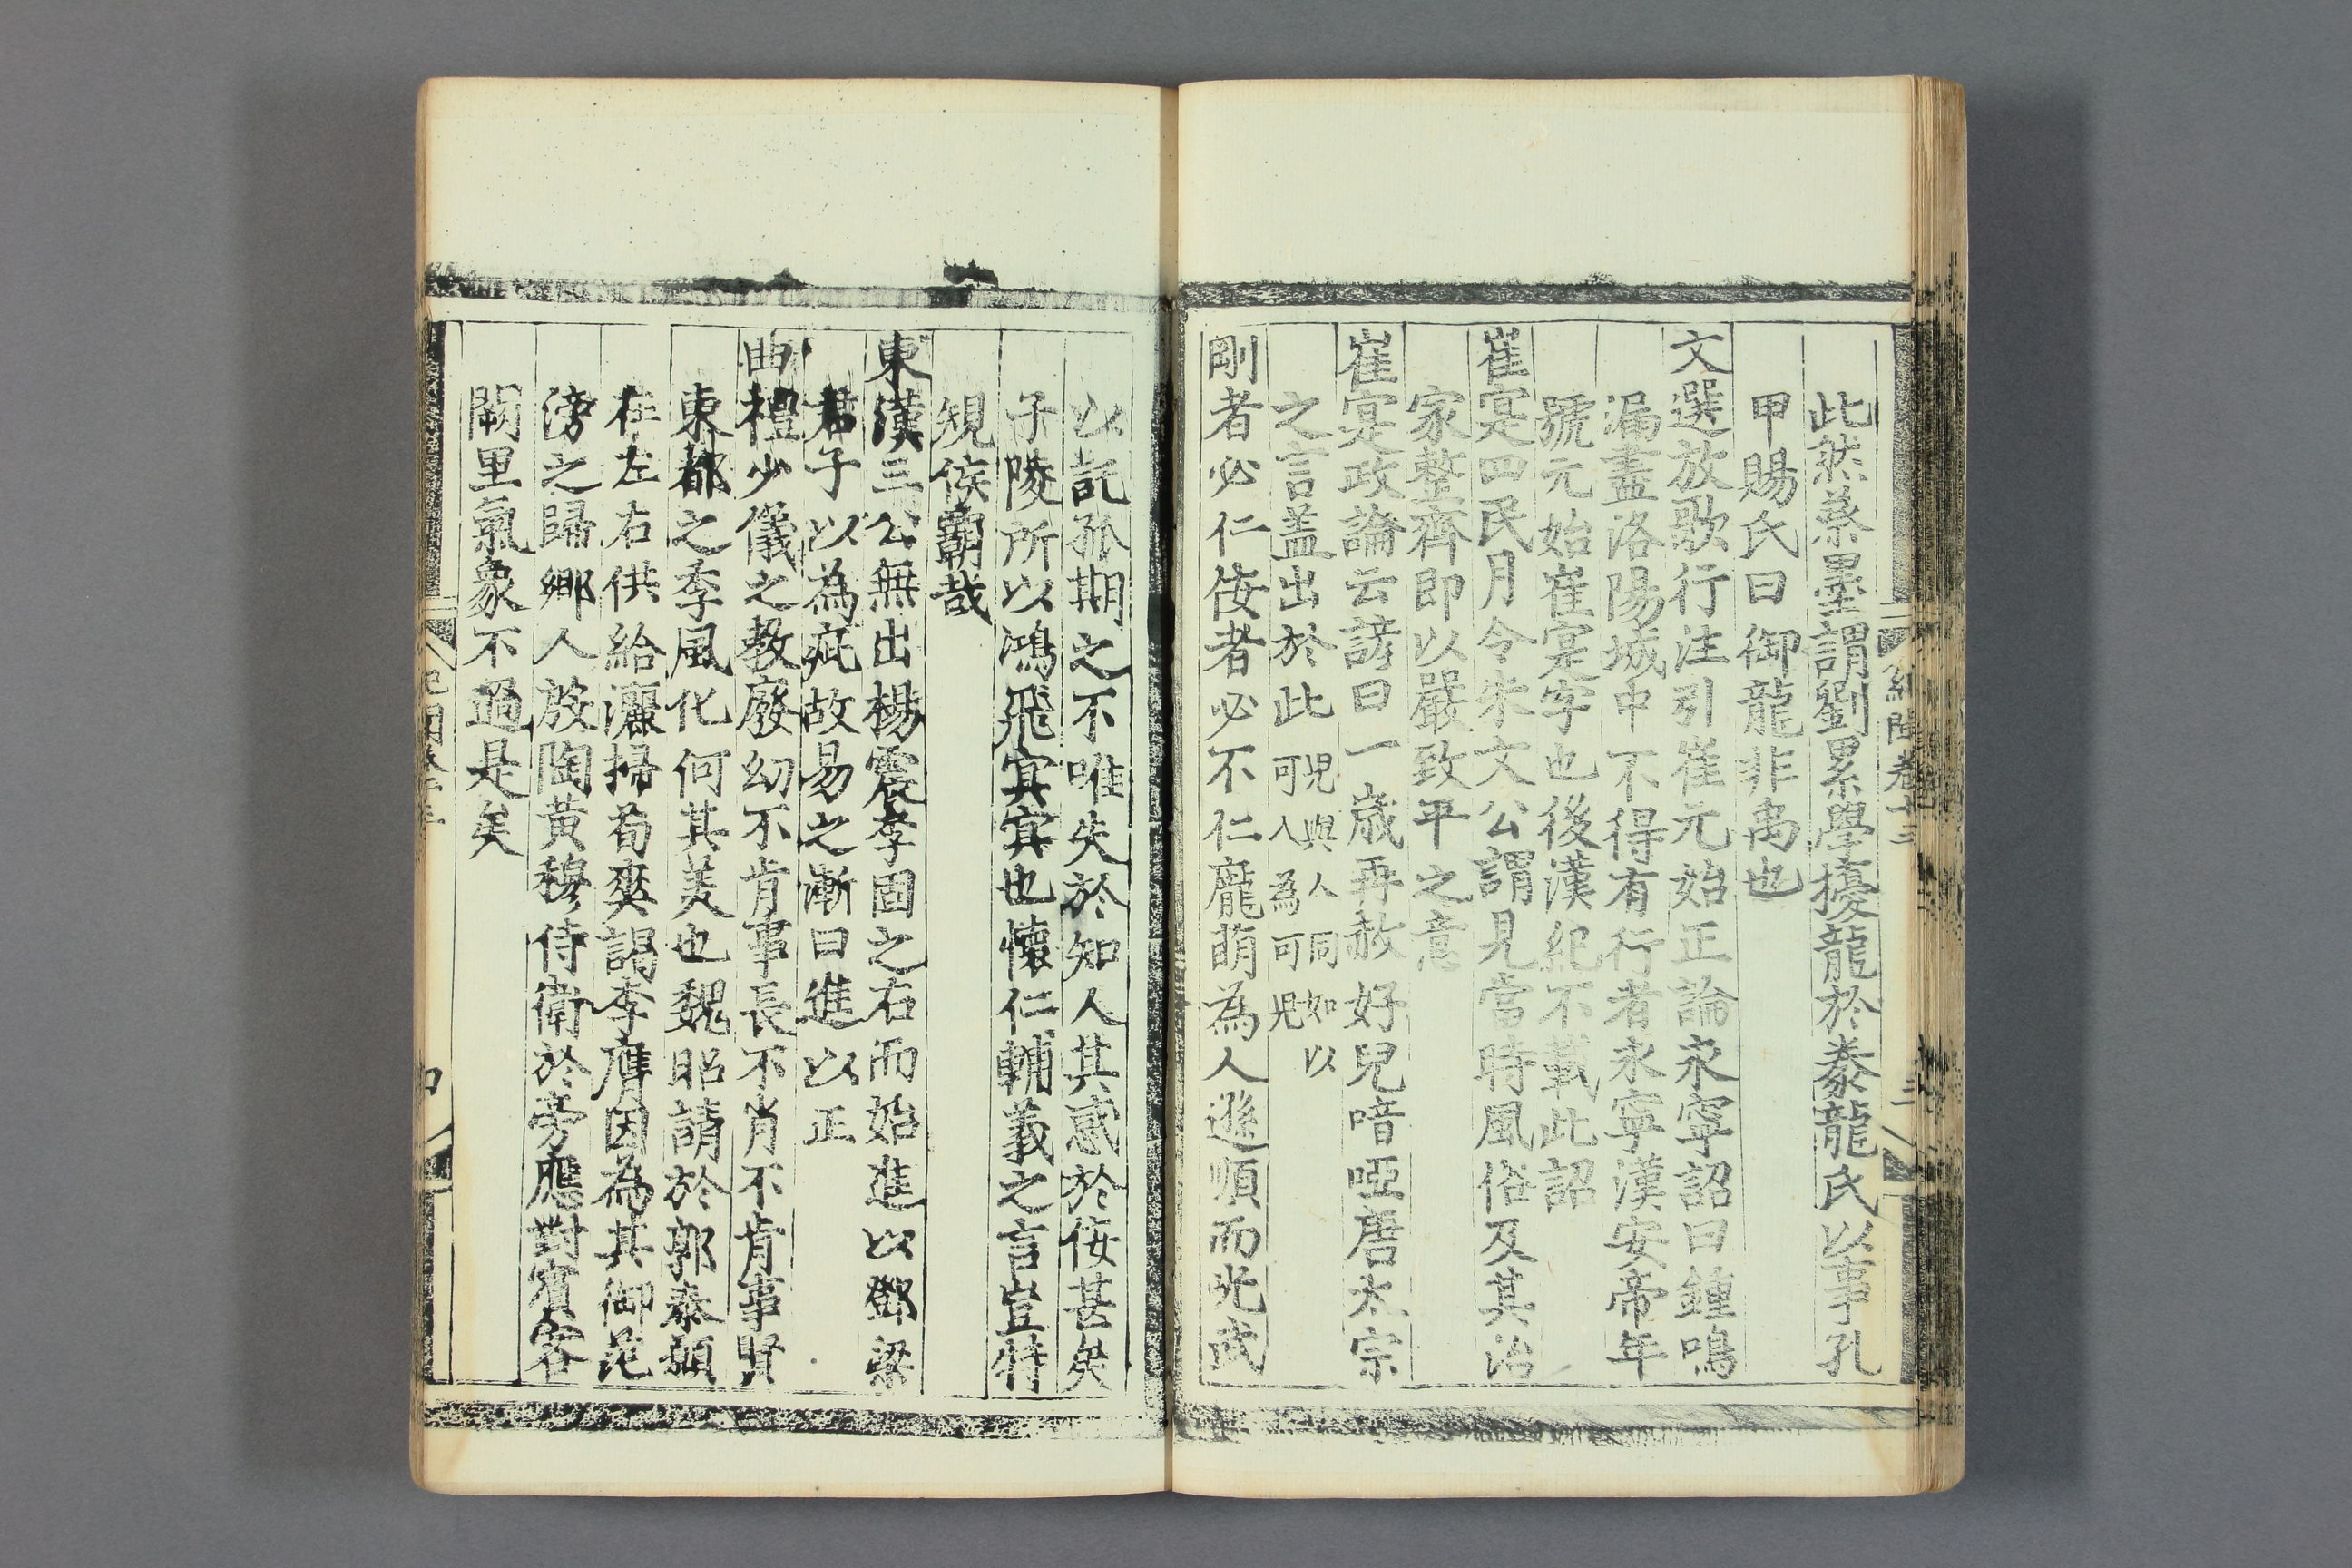 此然蔡墨謂劉累學擾龍於豢龍氏以事孔
甲賜氏曰御龍非禹也
文選放歌行注引崔元始正論永寧詔曰鐘鳴
漏盡洛陽城中不得有行者永寧漢安帝年
號元始崔寔字也後漢紀不載此詔
崔寔四民月令朱文公謂見當時風俗及其治
家整齊即以嚴致平之意
崔寔政論云諺曰一歲再赦好兒喑啞唐太宗
之言盖出於此
兒與人同如以
可人為可兒
剛者必仁佞者必不仁龐萌為人遜順而光武
紀聞卷十三
三
以託孤期之不唯失於知人其惑於佞甚矣
子陵所以鴻飛㝠㝠也懷仁輔義之言豈特
規侯霸哉
東漢三公無出楊震李固之右而始進以鄧梁
君子以為疵故易之漸曰進以正
曲禮少儀之教廢幼不肯事長不肖不肯事賢
東都之季風化何其美也魏昭請於郭泰願
在左右供給灑掃荀爽謁李膺因為其御范
滂之歸鄉人殷陶黃穆侍衛於旁應對賓客
闕里氣象不過是矣